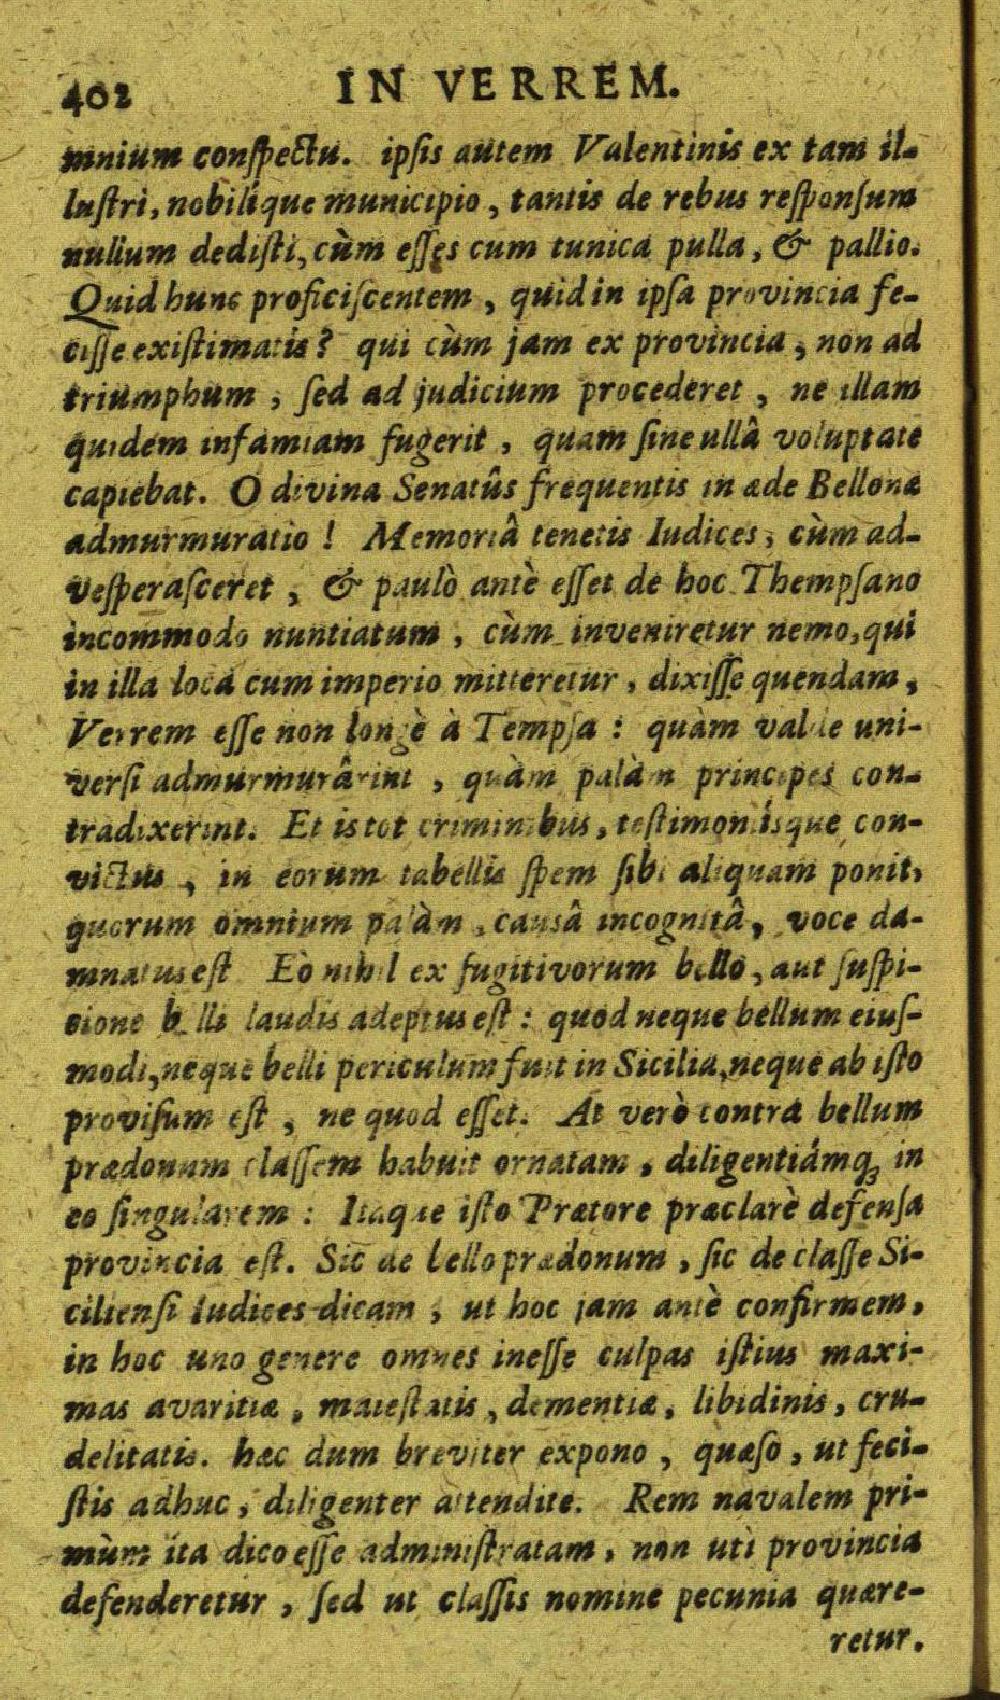 402 IN VERREM.
mnium conſpectu. ipſis autem Valentinis ex tam il-
luſtri, nobilíque municipio, tantis de rebus reſponſum
nullum dediſti, cùm eſſes cum tunica pulla, & pallio.
Quid hunc proficiſcentem, quid in ipſa provincia fe-
ciſſe exiſtimatis? qui cùm jam ex provincia, non ad
triumphum, ſed ad judicium procederet, ne illam
quidem infamiam fugerit, quam ſine ullâ voluptate
capiebat. O divina Senatûs frequentis in æde Bellonæ
admurmuratio! Memoriâ tenetis Iudices, cùm ad-
veſperaſceret, & paulò antè eſſet de hoc Thempſano
incommodo nuntiatum, cùm inveniretur nemo, qui
in illa loca cum imperio mitteretur, dixiſſe quendam,
Verrem eſſe non longè à Tempſa: quàm valde uni-
verſi admurmurârint, quàm palàm principes con-
tradixerint. Et is tot criminibus, teſtimoniísque con-
victus, in eorum tabellis ſpem ſibi aliquam ponit,
quorum omnium palàm, causâ incognitâ, voce da-
mnatus eſt Eò nihil ex fugitivorum bello, aut ſuſpi-
cione belli laudis adeptus eſt: quod neque bellum eiuſ-
modi, neque belli periculum fuit in Sicilia, neque ab iſto
proviſum eſt, ne quod eſſet. At verò contra bellum
prædonum claſſem habuit ornatam, diligentiámq; in
eo ſingularem: Itaque iſto Prætore præclarè defenſa
provincia eſt. Sic de bello prædonum, ſic de claſſe Si-
cilienſi Iudices dicam, ut hoc jam antè confirmem,
in hoc uno genere omnes ineſſe culpas iſtius maxi-
mas avaritiæ, maieſtatis, dementiæ, libidinis, cru-
delitatis. hæc dum breviter expono, quæſo, ut feci-
ſtis adhuc, diligenter attendite. Rem navalem pri-
mùm ita dico eſſe adminiſtratam, non uti provincia
defenderetur, ſed ut claſſis nomine pecunia quære-
retur.